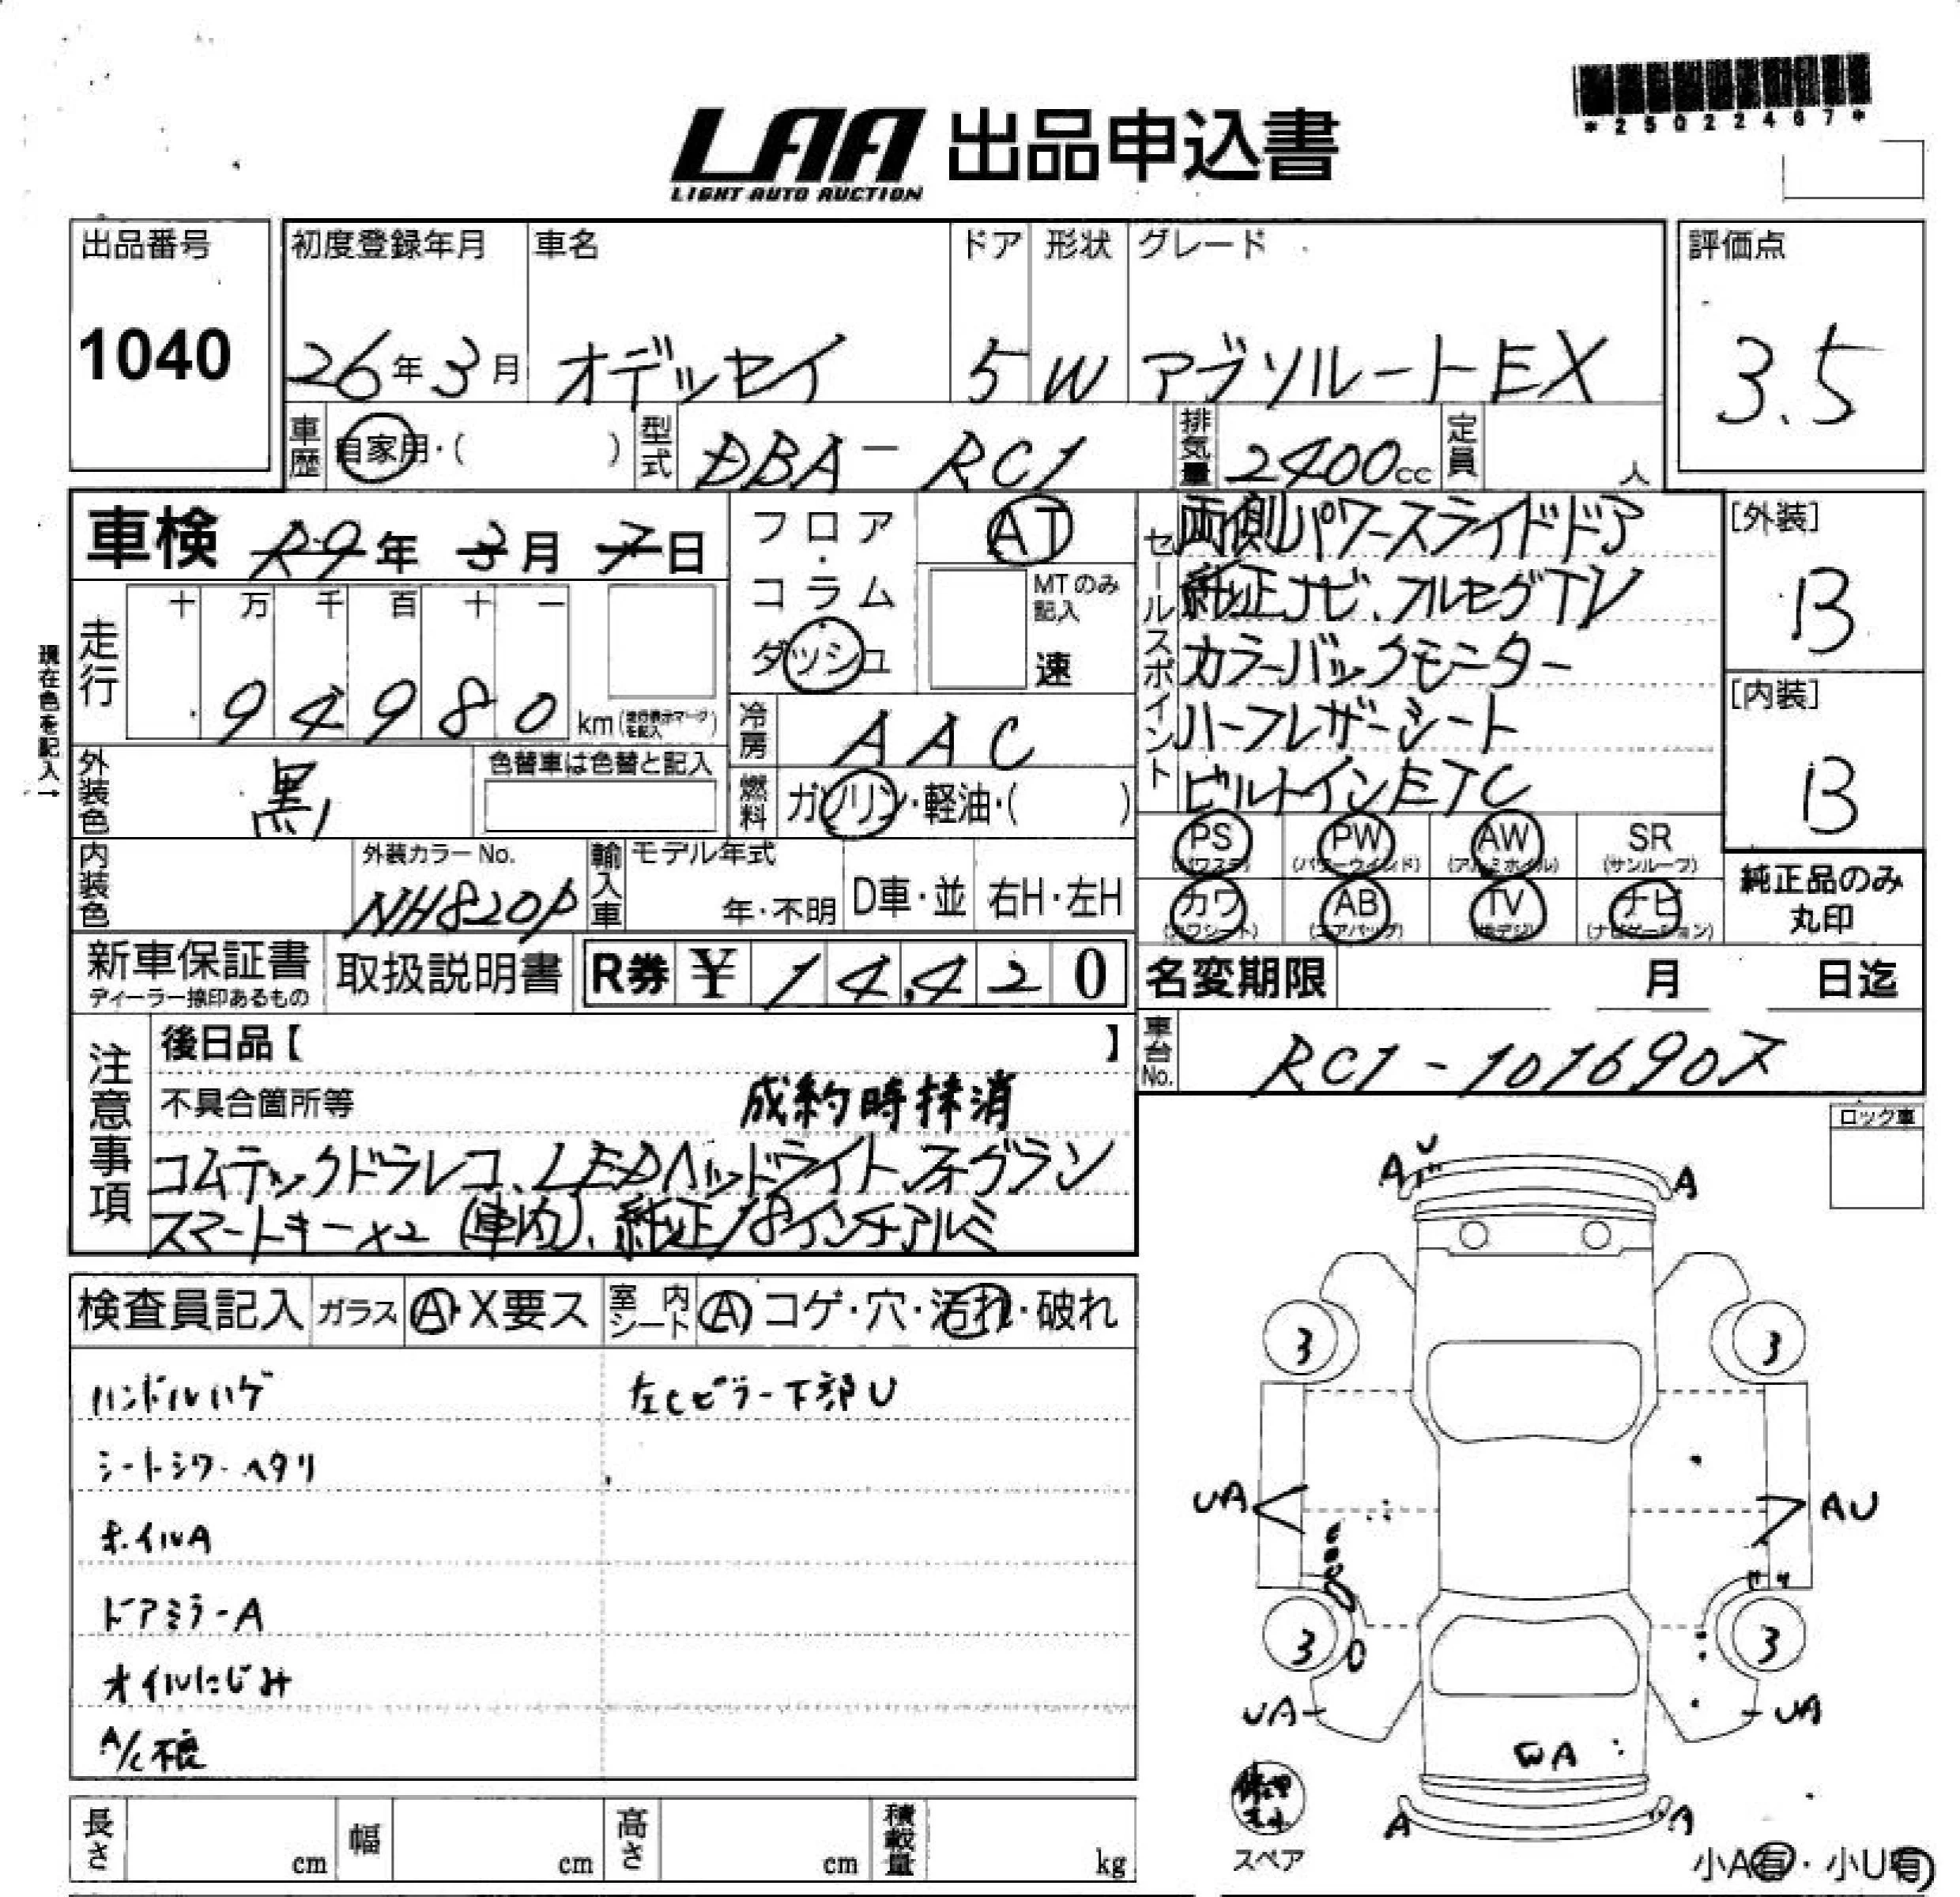 *25022467*
LAA 出品申込書
LIGHT AUTO AUCTION
出品番号
1040
初度登録年月 車名 ドア 形状 グレード
26年3月 オデッセイ 5 W アブソルートEX
評価点
3.5
車歴 自家用・( ) 型式 DBA-RC1 排気量 2400cc 定員 人
車検 R9年3月7日
フロア・コラム・ダッシュ
AT
MTのみ記入
速
現在色を記入→
走行 十 万 千 百 十 一
94980 km
冷房 AAC
外装色 黒
色替車は色替と記入
燃料 ガソリン・軽油・( )
内装色
外装カラーNo.
NH820P
輸入車 モデル年式
年・不明 D車・並 右H・左H
セールスポイント
両側パワースライドドア
純正ナビ、フルセグTV
カラーバックモニター
ハーフレザーシート
ビルトインETC
[外装]
B
[内装]
B
PS PW AW SR
(パワステ) (パワーウインド) (アルミホイル) (サンルーフ)
カワ AB TV ナビ
(カワシート) (エアバッグ) (地デジ) (ナビゲーション)
純正品のみ
丸印
新車保証書
ディーラー捺印あるもの
取扱説明書 R券 ¥ 14,420
名変期限 月 日迄
車台No. RC1-1016907
注意事項
後日品【 】
不具合箇所等 成約時抹消
コムテックドラレコ、LEDヘッドライト、フォグラン
スマートキー×2 (車内)、純正18インチアルミ
ロック車
検査員記入 ガラス A・X要ス 室内シート A コゲ・穴・汚れ・破れ
ハンドルハゲ 左Cピラー下部U
シートシワ・ヘタリ
ホイルA
ドアミラーA
オイルにじみ
A/C不良
U
A A
3 3
UA AU
3 3
UA UA
A A
スペア
小A有・小U有
長さ cm 幅 cm 高さ cm 積載量 kg